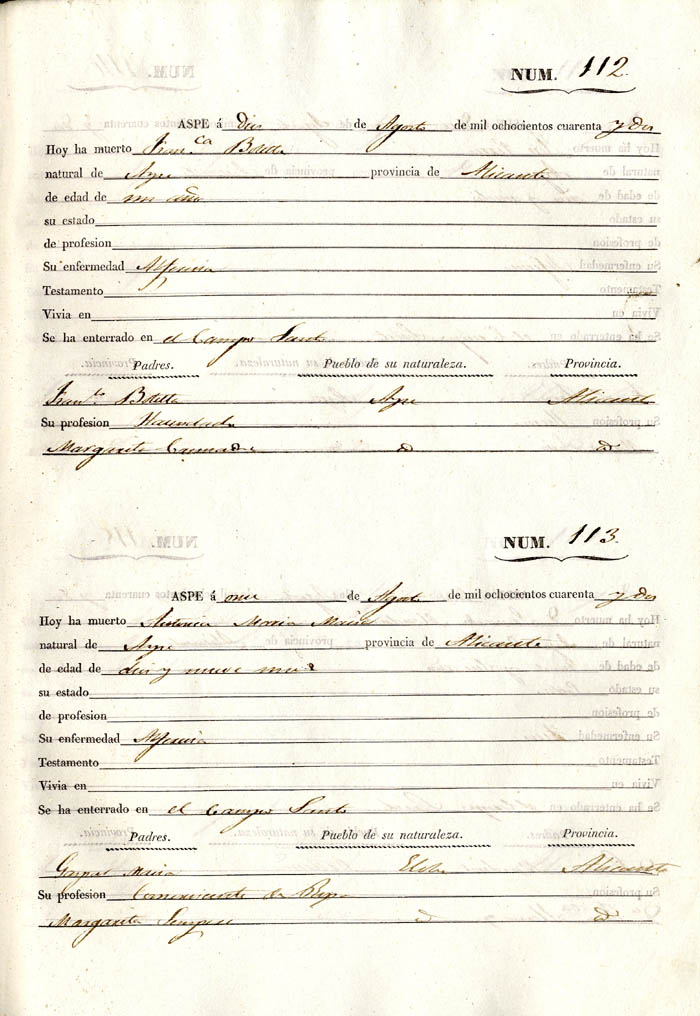 NUM. 112.
ASPE á diez de Agosto de mil ochocientos cuarenta y dos
Hoy ha muerto Fran.ca Botella
natural de Aspe provincia de Alicante
de edad de un año
su estado
de profesion
Su enfermedad Alferecia
Testamento
Vivia en
Se ha enterrado en el Campo Santo
Padres. Pueblo de su naturaleza. Provincia.
Fran.co Botella Aspe Alicante
Su profesion
Margarita d d
NUM. 113.
ASPE á once de Agosto de mil ochocientos cuarenta y dos
Hoy ha muerto Antonia Maria Mira
natural de Aspe provincia de Alicante
de edad de diez y nueve meses
su estado
de profesion
Su enfermedad Alferecia
Testamento
Vivia en
Se ha enterrado en el Campo Santo
Padres. Pueblo de su naturaleza. Provincia.
Gaspar Mira Elda Alicante
Su profesion Comerciante de Ropa
Margarita Sempere d d